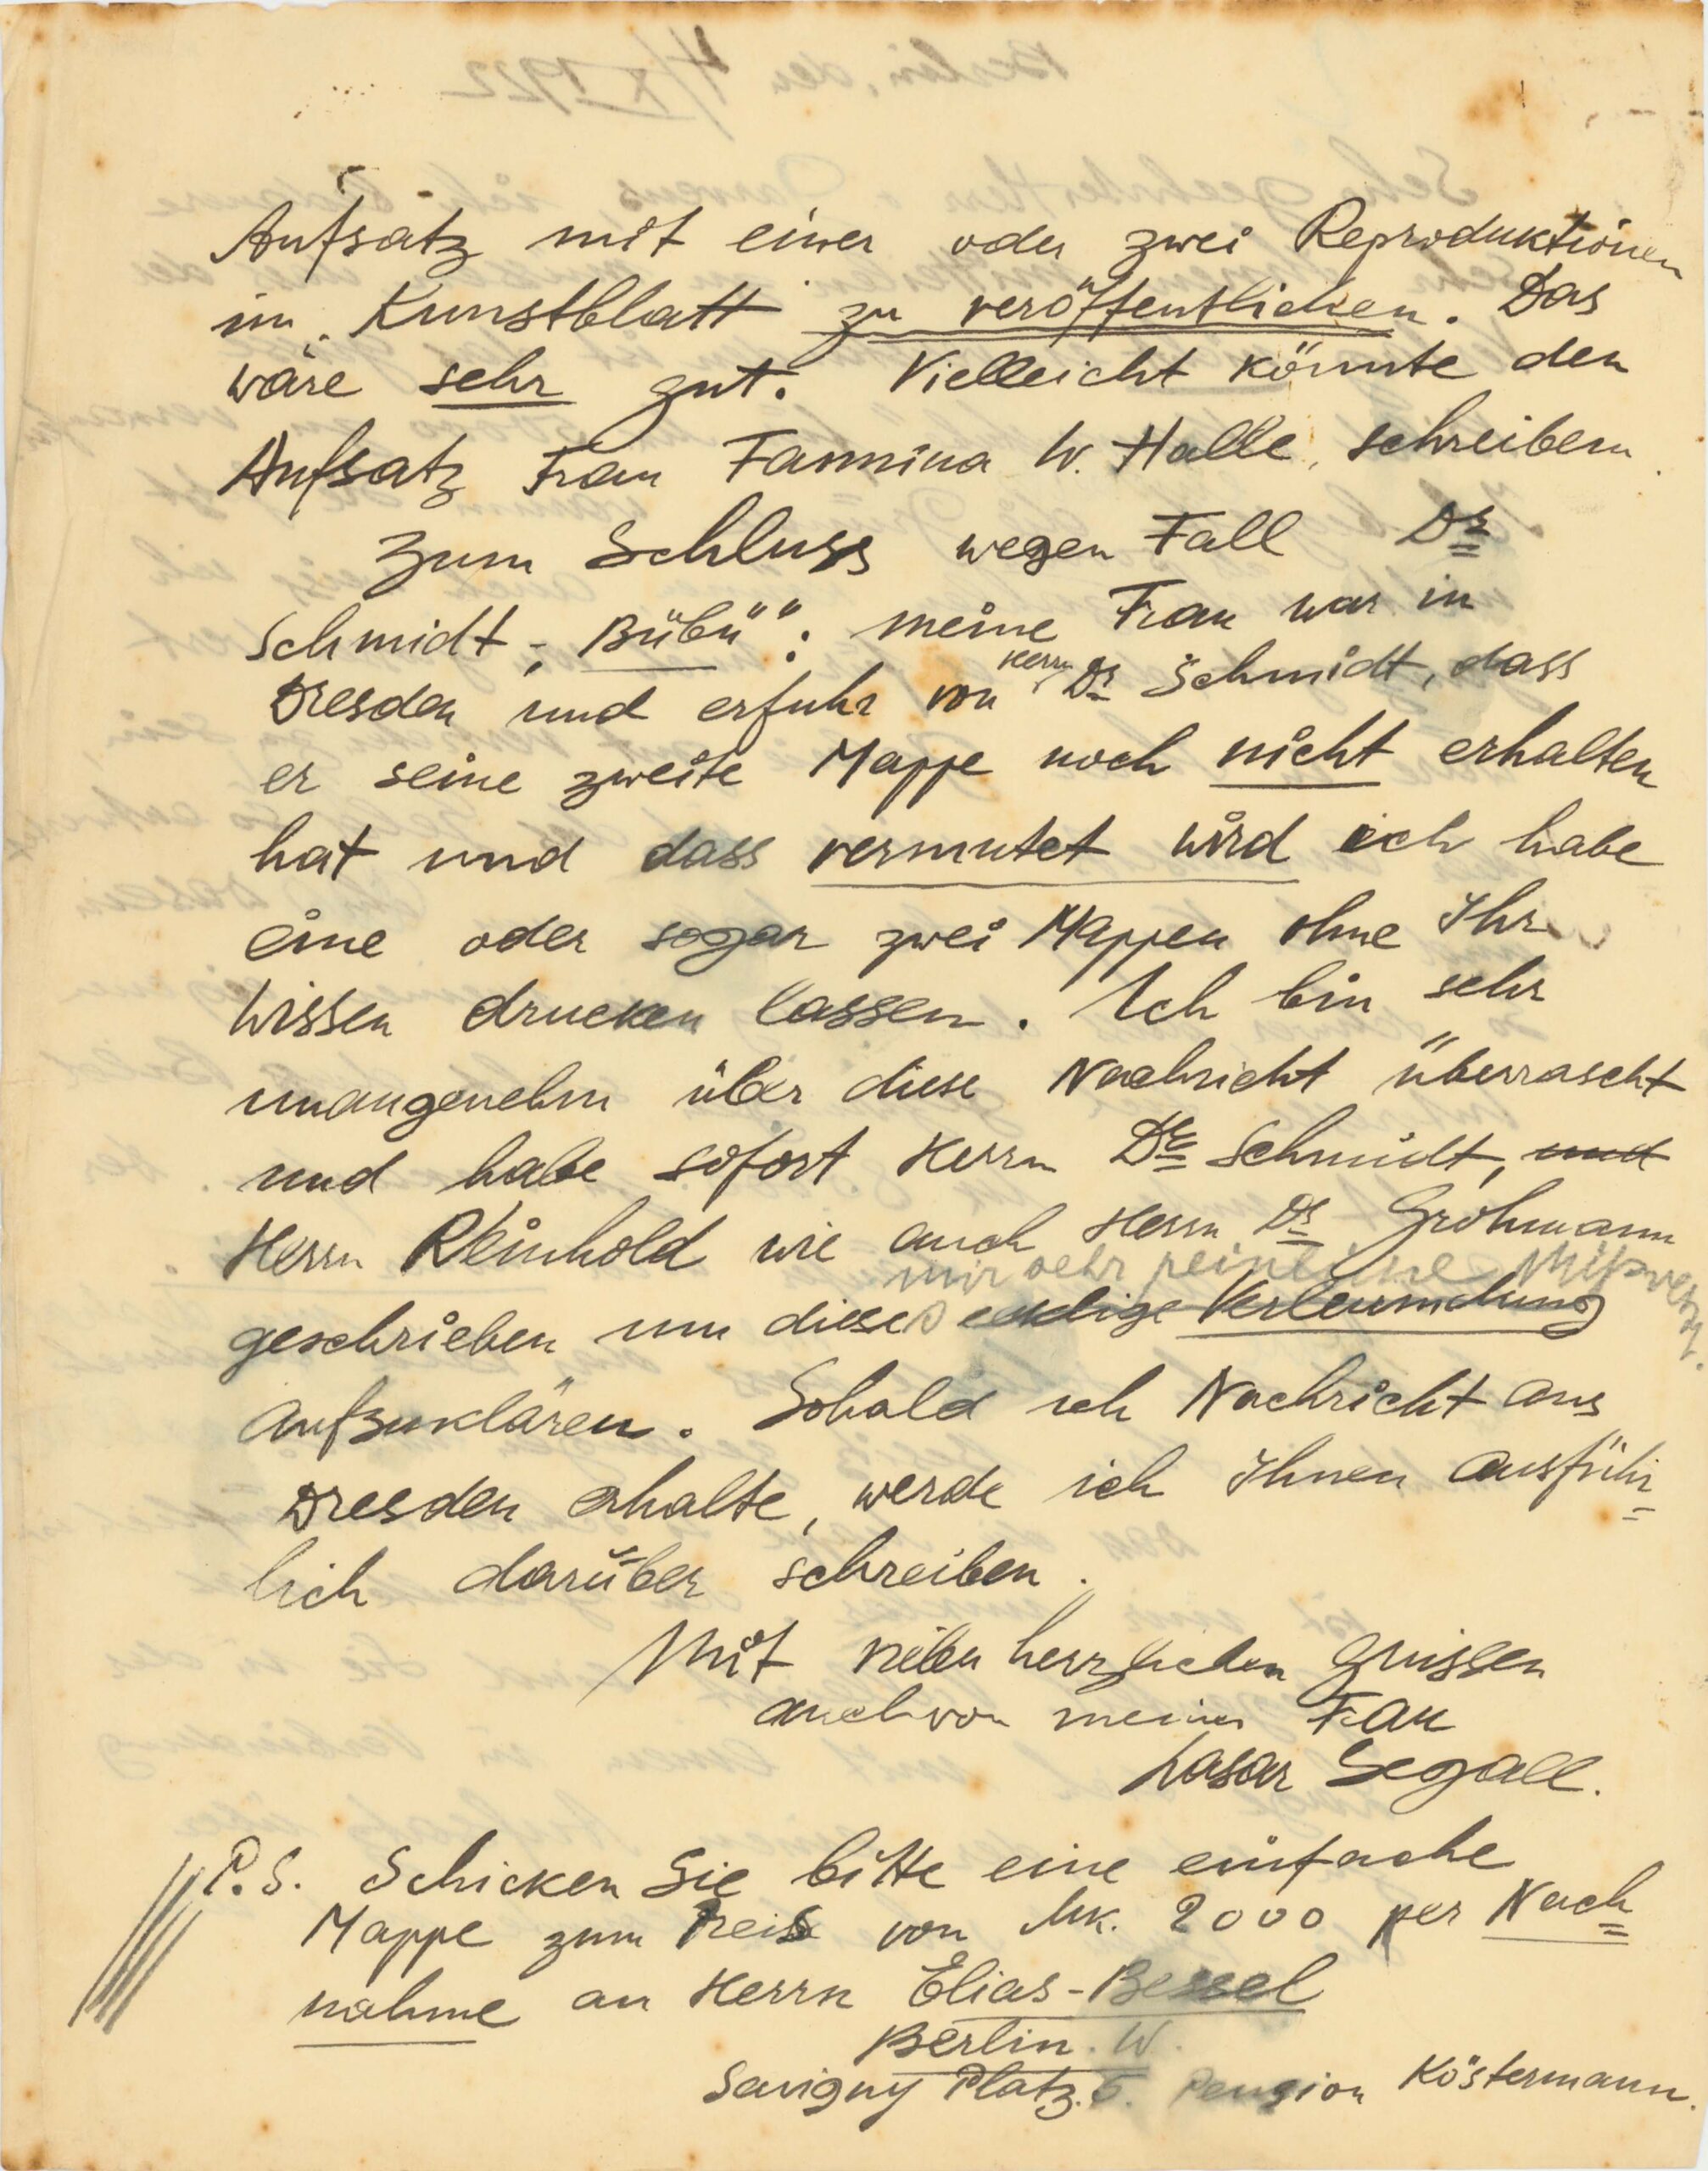 Aufsatz mit einer oder zwei Reproduktionen
im Kunstblatt zu veröffentlichen. Das
wäre sehr gut. Vielleicht könnte den
Aufsatz Frau Fannina W. Halle, schreiben.
Zum Schluss wegen Fall Dr
Schmidt - „Bübü": meine Frau war in
Dresden und erfuhr von Herrn Dr Schmidt, dass
er seine zweite Mappe noch nicht erhalten
hat und dass vermutet wird ich habe
eine oder sogar zwei Mappen ohne Ihr
Wissen drucken lassen. Ich bin sehr
unangenehm über diese Nachricht überrascht
und habe sofort Herrn Dr Schmidt, und
Herrn Reinhold wie auch Herrn Dr Grohmann
mir sehr peinliche Missverst.
geschrieben um dieses Verleumdung
aufzuklären. Sobald ich Nachricht aus
Dresden erhalte, werde ich Ihnen ausführ=
lich darüber schreiben.
Mit vielen herzlichen Grüssen
auch von meiner Frau
Lasar Segall.
P.S. Schicken Sie bitte eine einfache
Mappe zum Preise von Mk. 2000 per Nach=
nahme an Herrn Elias-Bessel
Berlin. W.
Savigny Platz. 5. Pension Köstermann.